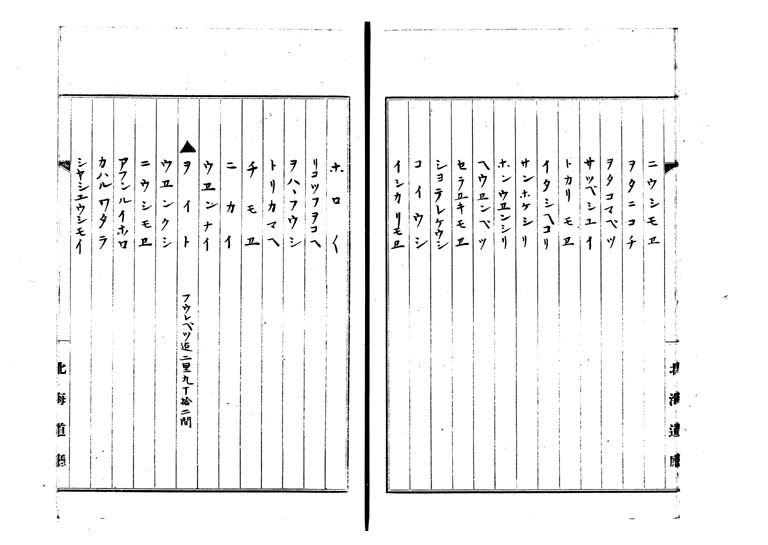 ニウシモヱ
ヲタニコチ
ヲタコマベツ
サッペシユイ
トカリモヱ
イタシヘコリ
サンホケシリ
ホンウヱンシリ
ヘウヱンベツ
セラヱキモヱ
シヨテレケウシ
コイウシ
イシカリモヱ
北海道廳
ホロ〱
リコツフヲコヘ
ヲハヽフウシ
トリカマヘ
チモヱ
ニカイ
ウヱンナイ
▲ヲイト フウレベツ迄二里九丁拾二間
ウヱンクシ
ニウシモヱ
アフンルイホロ
カハルワタラ
シヤシユウシモイ
北海道廳